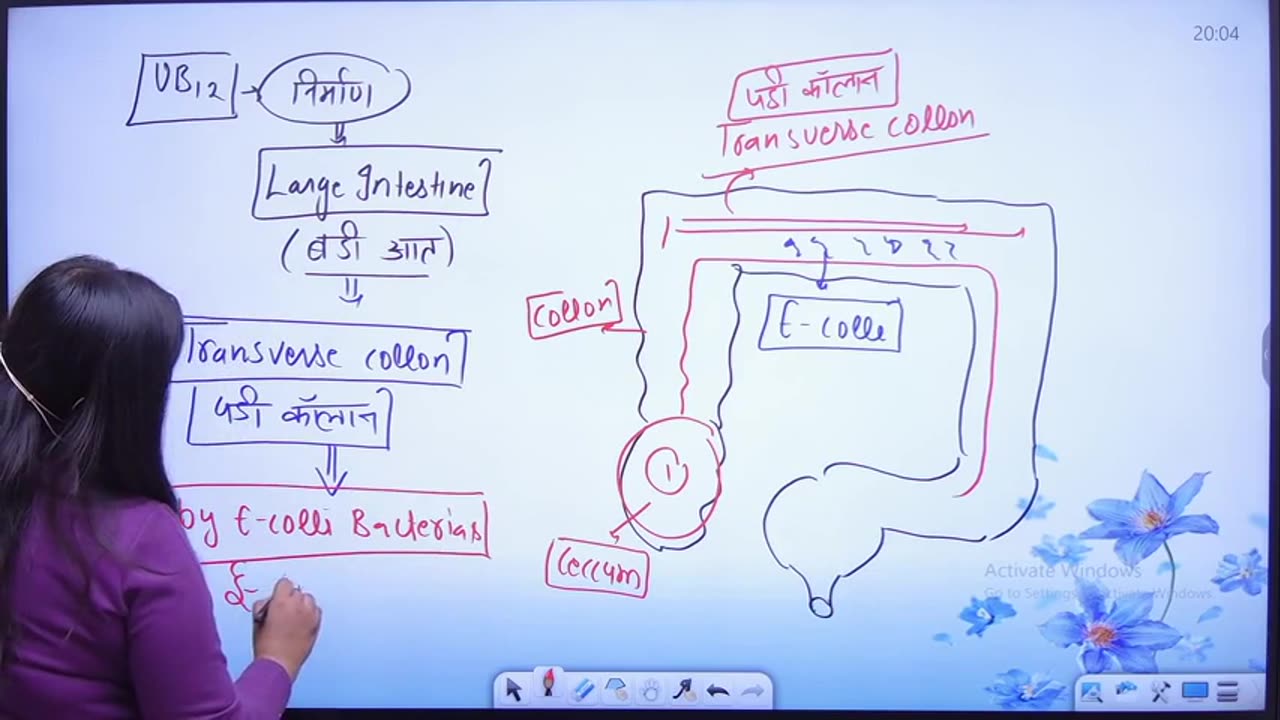 20:04
VB12 → निर्माण
Large Intestine
(बडी आत)
Transverse collon
पडी कॉलान
by E-colli Bacterias
{-
पडी कॉलान
Transverse collon
Collon
E-colli
1
Ceccum
Activate Windows
Go to Settings to activate Windows.